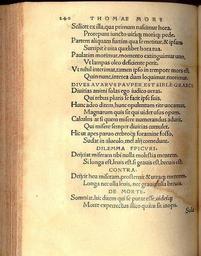 240 THOMAE MORI
Scilicet ex illa, qua primum nascimur hora.
Prorepunt iuncto uitaq; morsq; pede.
Partem aliquam furtim qua se metitur, & ipsam
Surripit è uita quælibet hora tua.
Paulatim morimur, momento extinguimur uno,
Ut lampas oleo deficiente perit.
Ut nihil interimat, tamen ipso in tempore mors est.
Quin nunc, interea dum loquimur, morimur.
DIVES AVARVS PAVPER EST SIBI. E GRAECO
Diuitias animi solas ego iudico ueras.
Qui rebus pluris se facit ipse suis.
Hunc adeo ditem, hunc opulentum rite uocamus,
Magnarum quis sit qui uidet usus opum.
Calculus at si quem misere numerandus adurit,
Qui semper misere diuitias cumulet.
Hic ut apes paruo crebroq; foramine fossis,
Sudat in alueolo, mel alij comedunt.
DILEMMA EPICVRI.
Deijciat miseram tibi nulla molestia mentem.
Si longa est, leuis est, si grauis est, breuis est.
CONTRA.
Deijcit heu miseram, prosternit & utraq; mentem
Longa nec ulla leuis, nec grauis ulla breuis.
DE MORTE.
Somniat, hic ditem qui se putat esse,
Morte expergefactus illico quàm sit inops.